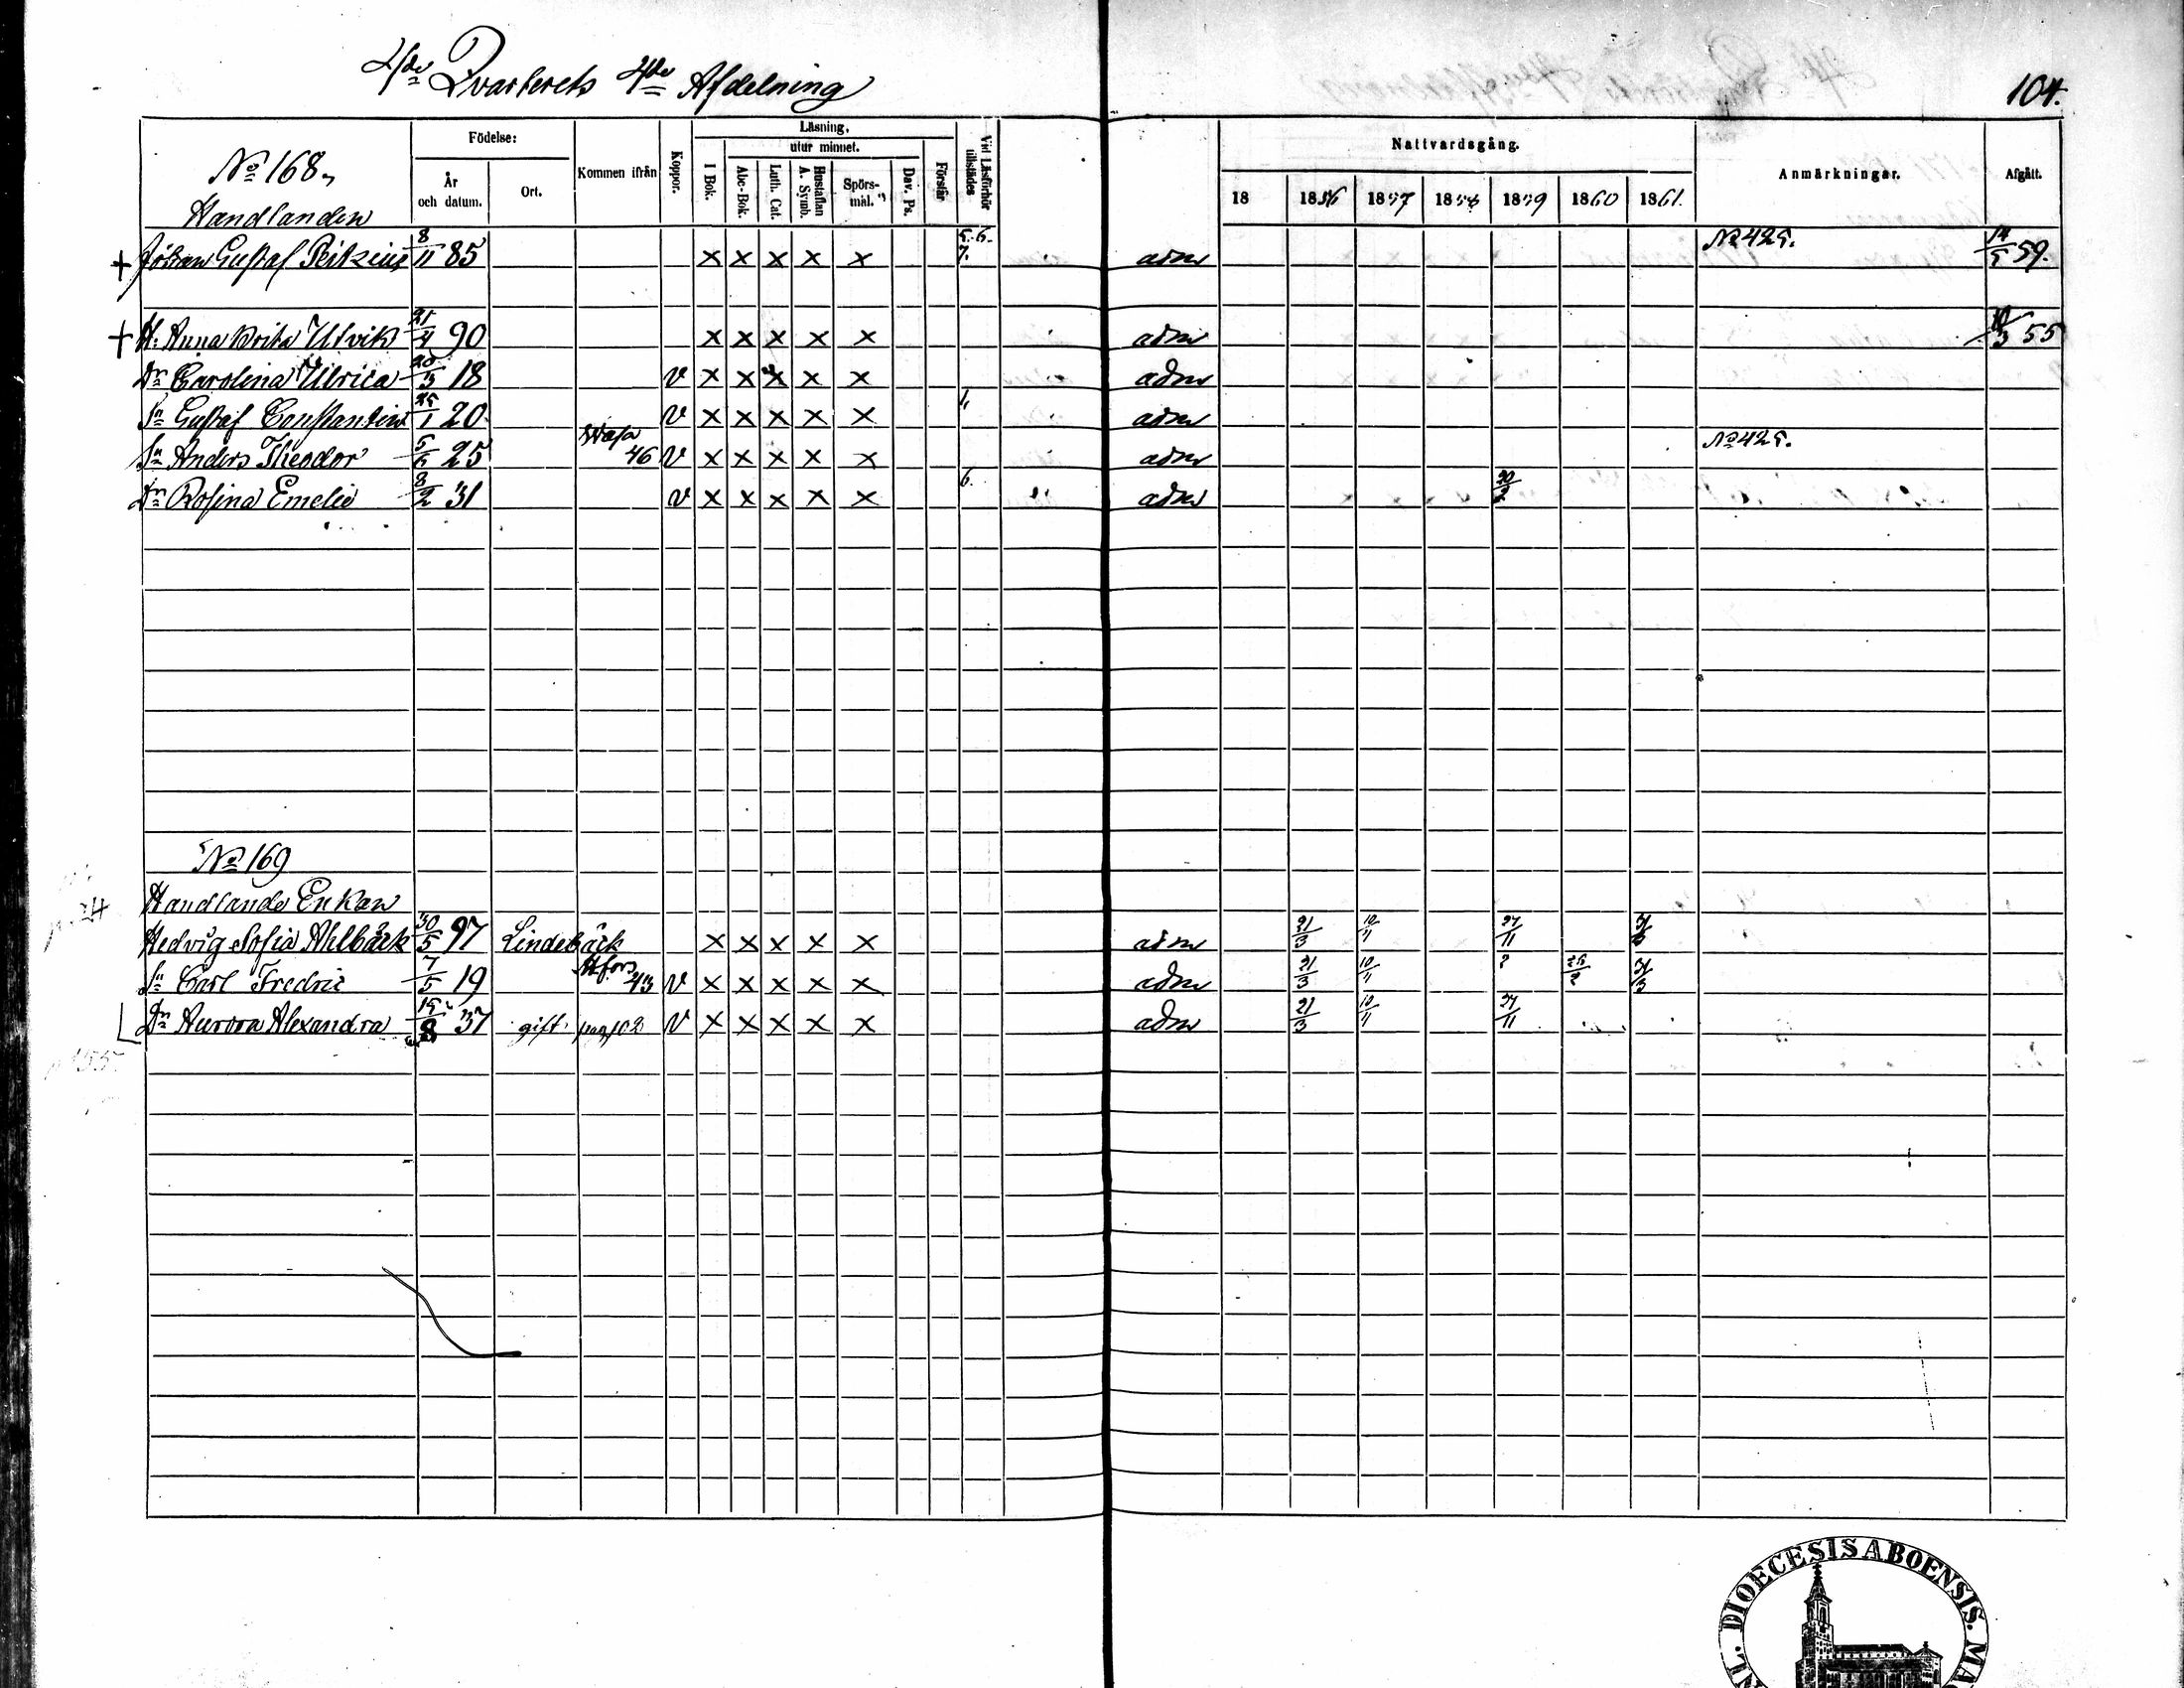 4de Qvarterets 4de Afdelning
104.
Födelse:
Läsning,
utur minnet.
År och datum.
Ort.
Kommen ifrån
Koppor.
I Bok.
Abc-Bok.
Luth. Cat.
Hustaflan A. Symb.
Spörsmål.
Dav. Ps.
Förstår
Vid Läsförhör tillstädes
Nattvardsgång.
18 1856 1857 1858 1859 1860 1861.
Anmärkningar.
Afgått.
No 168.
Handlanden
+ Johan Gustaf 8/11 85 x x x x x 5.6. 7. adm No 425. 14/5 59.
+ H. Anna Brita Ulvik 21/4 90 x x x x x adm 3 55
Dr Carolina Ulrica 20/3 18 v x x x x x adm
Sn Gustaf Constantin 25/1 20 v x x x x x 1. adm
Sn Anders Theodor 5/6 25 Wasa 46 v x x x x x adm No 425.
Dr Rosina Emelie 8/2 31 v x x x x x 6. adm 20/2
No 169
Handlande Enkan
Hedvig Sofia Ahlbäck 30/5 97 Lindebäck x x x x x adm 21/3 10/11 27/11 31/3
Sn Carl Fredric 7/5 19 Hfors 43 v x x x x x adm 21/3 10/11 ? 26/2 31/3
Dr Aurora Alexandra 15/8 37 gift. pag 102 v x x x x x adm 21/3 10/11 27/11
DIOECESIS ABOENSIS.